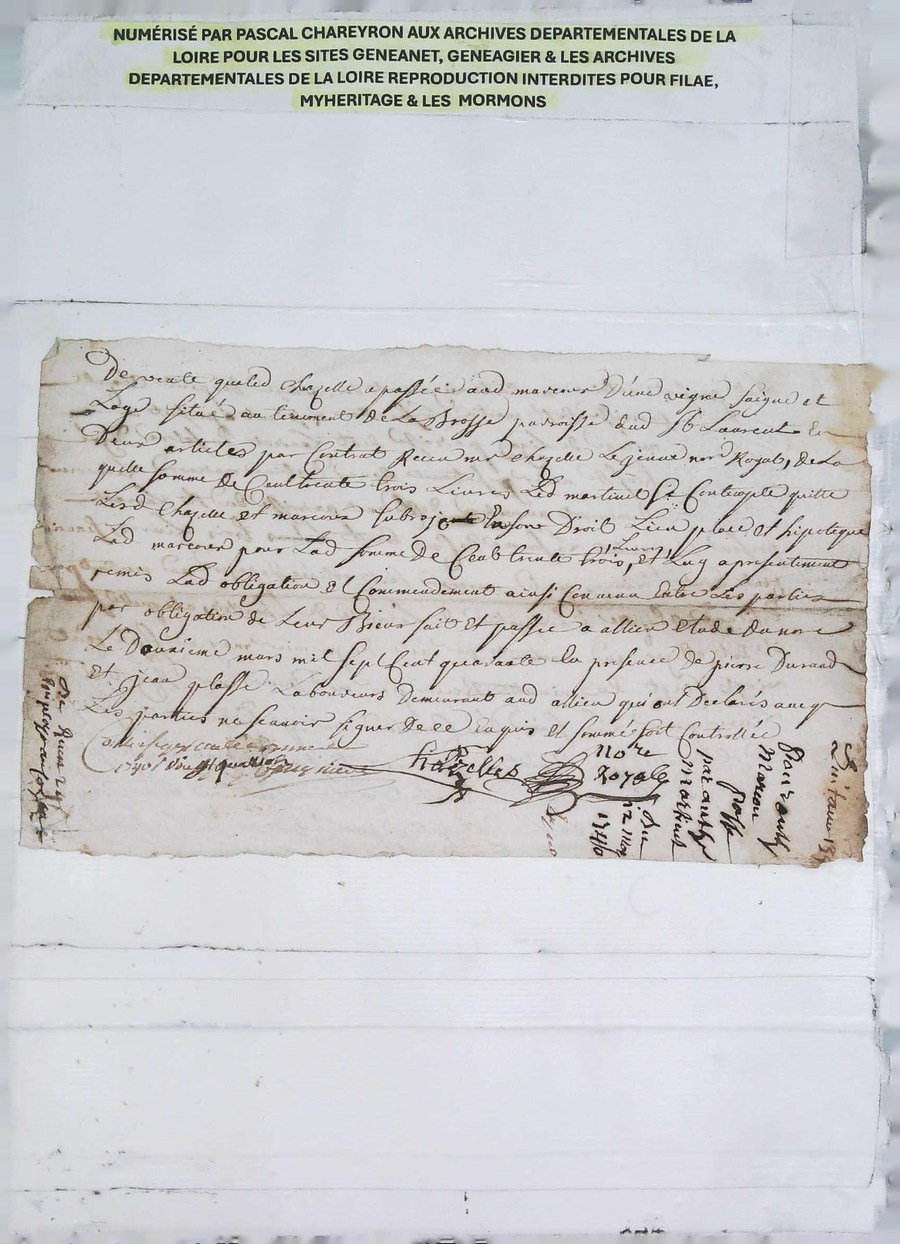 NUMÉRISÉ PAR PASCAL CHAREYRON AUX ARCHIVES DEPARTEMENTALES DE LA
LOIRE POUR LES SITES GENEANET, GENEAGIER & LES ARCHIVES
DEPARTEMENTALES DE LA LOIRE REPRODUCTION INTERDITES POUR FILAE,
MYHERITAGE & LES MORMONS
De vente que led chazelle a passée aud marcoux D'une vigne saigne et
Loge situé au tenement de La Brosse parroisse dud St Laurent En
Deux articles par Contrat Receu me chazelle Le jeune nore Royal, de La
quelle somme de Cent trente trois Livres Led martinet Se Contempte quitte
Lesd Chazelle et marcoux subroje En son Droit Lieu place et hipoteque
Lad marcoux pour Lad somme De Cent trente trois Livres, et Luy a presentement
remis Lad obligation et Commendement ainsi Convenu Entre Les parties
par obligation de Leurs Bieux fait et passée a allieu etude du nore
Le Douzieme mars mil sept Cent quarante En presence de pierre Durand
et jean plasse Laboureurs Demeurant aud allieu qui ont Declarés avecq
Les parties ne scavoir signer De ce Enquis et sommé soit Controllée
chazelles
nore
Royale
Du
12 mars
1740
Quittance